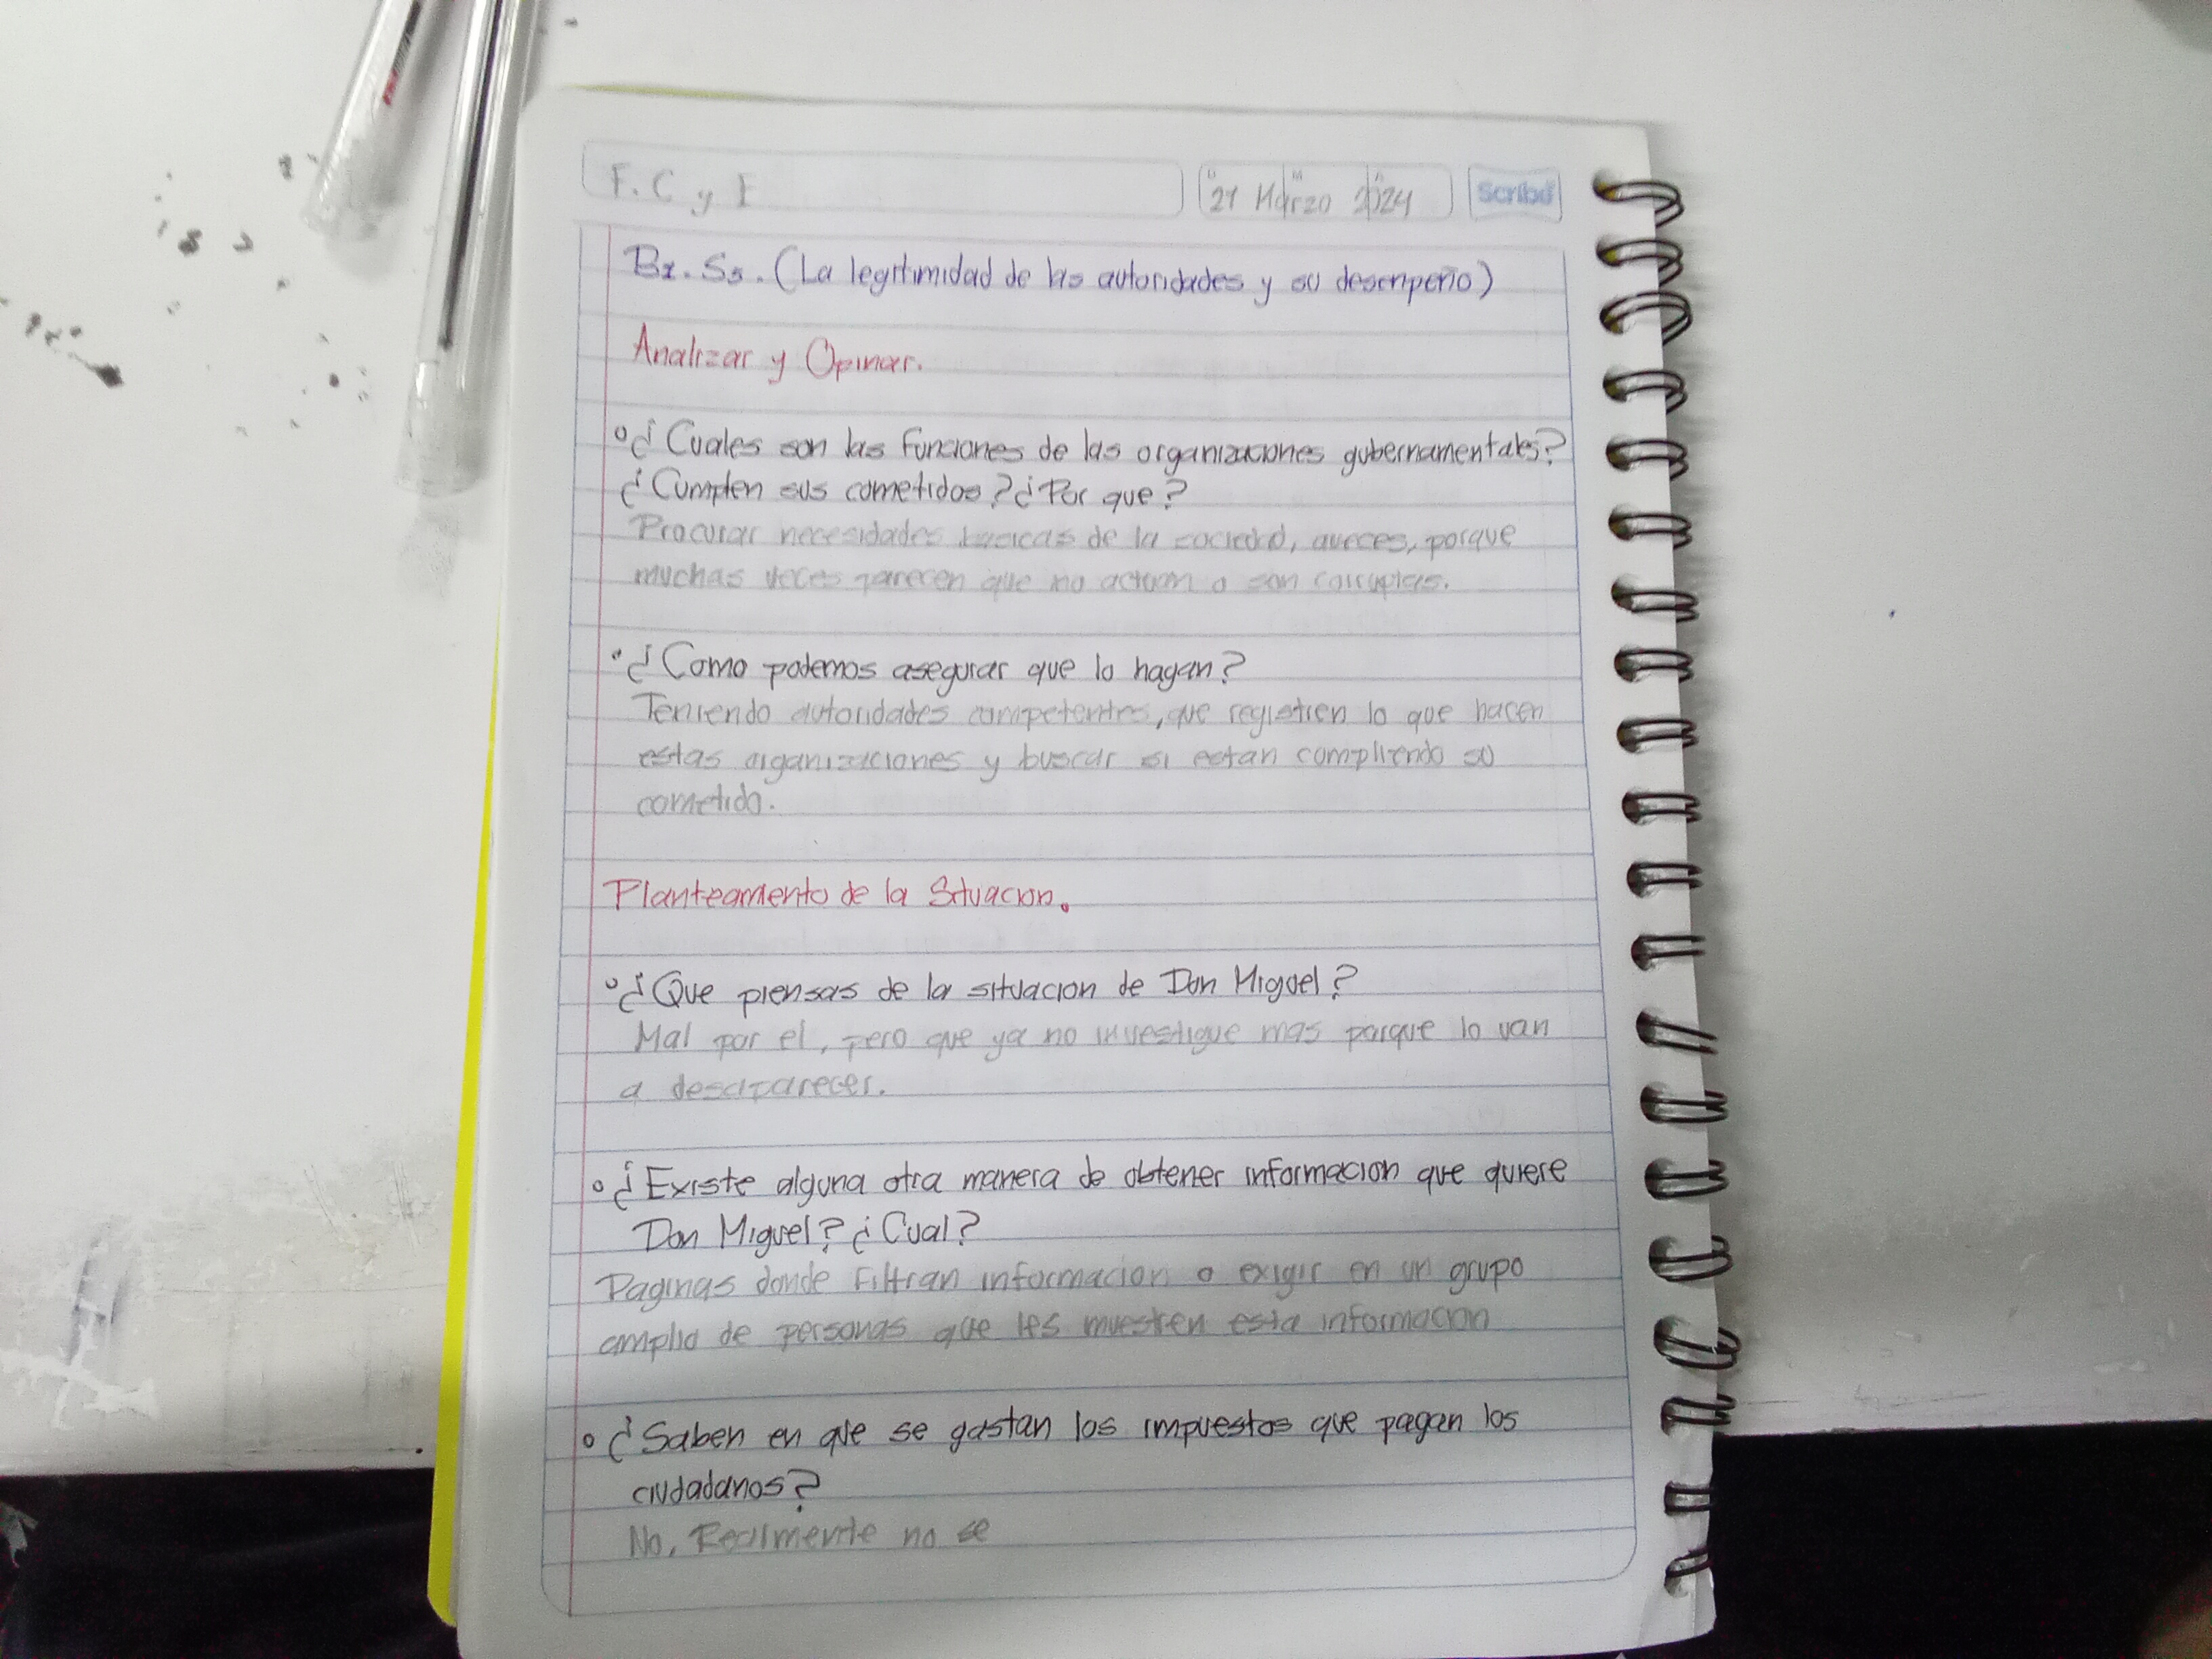 F. C y E
21 Marzo 2024
Scribe
B1. S3. (La legitimidad de las autoridades y su desempeño)
Analizar y Opinar.
°¿Cuales son las funciones de las organizaciones gubernamentales?
¿Cumplen sus cometidos?¿Por que?
Procurar necesidades basicas de la sociedad, aveces, porque
muchas veces parecen que no actuan o son corruptas.
°¿Como podemos asegurar que lo hagan?
Teniendo autoridades competentes, que registren lo que hacen
estas organizaciones y buscar si estan compliendo su
cometido.
Planteamiento de la Situacion.
°¿Que piensas de la situacion de Don Miguel?
Mal por el, pero que ya no investigue mas porque lo van
a desaparecer.
°¿Existe alguna otra manera de obtener informacion que quiere
Don Miguel? ¿Cual?
Paginas donde filtran informacion o exigir en un grupo
amplio de personas que les muestren esta informacion
°¿Saben en que se gastan los impuestos que pagan los
ciudadanos?
No, Realmente no se